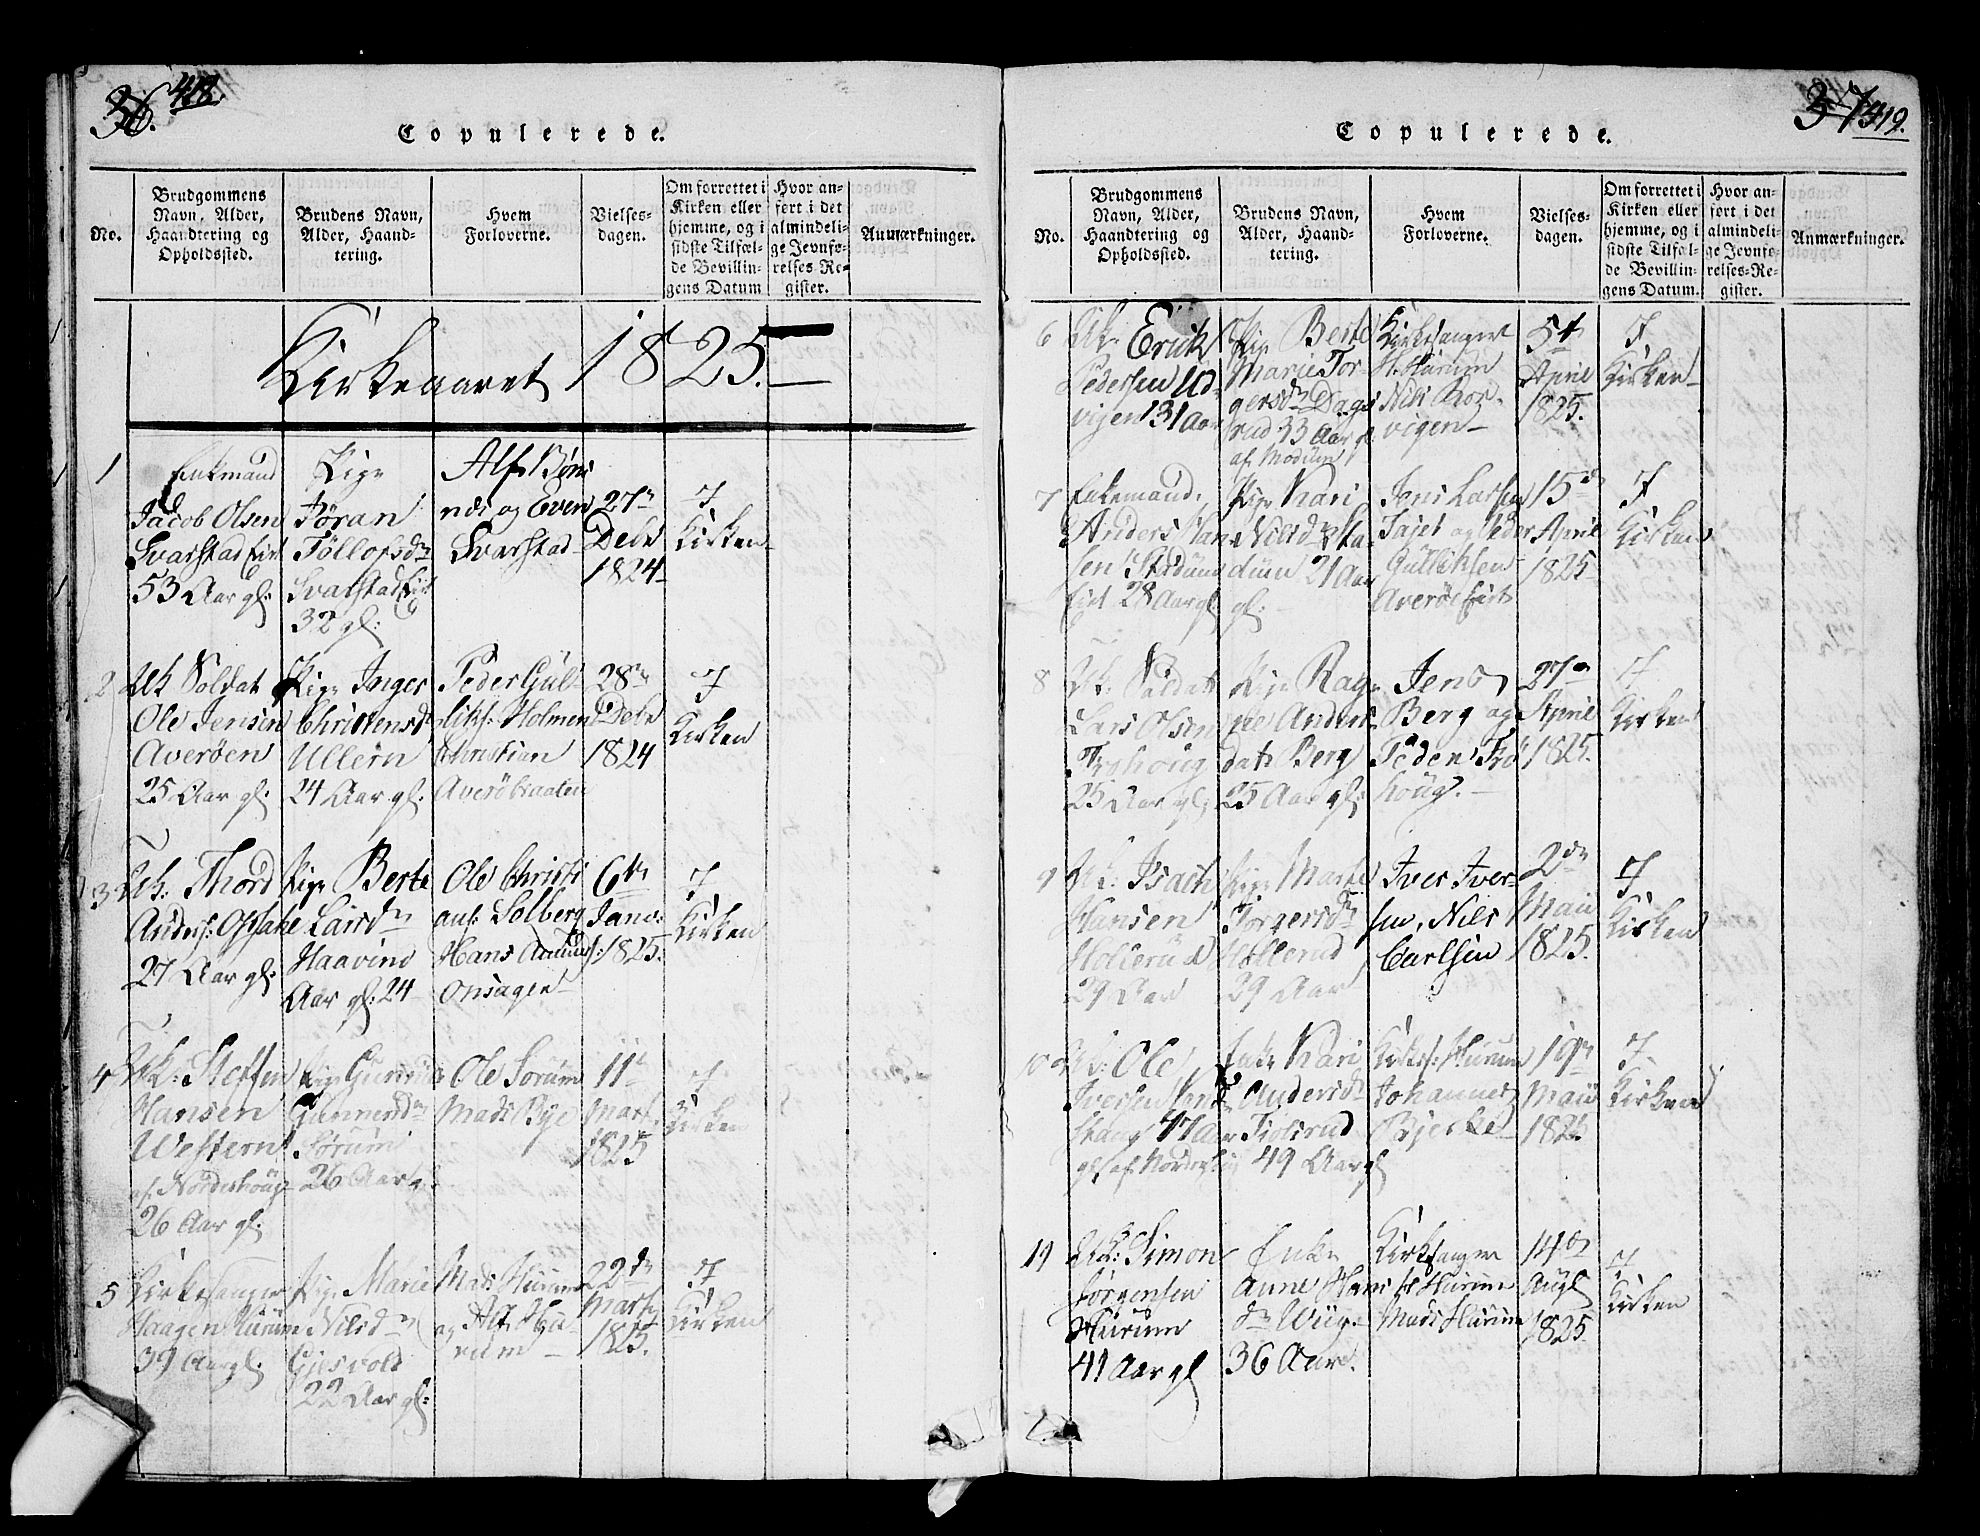 36. 418.
Copulerede.
No.
Brudgommens
Navn, Alder,
Haandtering og
Opholdssted.
Brudens Navn,
Alder, Haand-
tering.
Hvem
Forloverne.
Vielses-
dagen.
Om forrettet i
Kirken eller
hjemme, og i
sidste Tilfæl-
de Bevillin-
gens Datum
Hvor an-
ført i det
almindeli-
ge Jevnfø-
relses-Re-
gister.
Anmærkninger.
Kirkeaaret 1825.
1
Enkmand
Jacob Olsen
Svarstad Eie
53 Aar gl:
Pige
Jøran
Tollofsdr
Svarstad Eie
32 gl:
Alf Bøns
næs og Even
Svarstad
27de
Debr
1824
I
Kirken
2
Uk Soldat
Ole Jensen
Averøen
25 Aar gl:
Pige Inger
Christensd
Ullern
24 Aar gl:
Peder Gul-
liks: Holmen
Christian
Averøbraaten
28de
Debr
1824
I
Kirken
3
Uk: Thord
Anders: Opsahl
27 Aar gl:
Pige Berte
Larsdr
Haavind
Aar gl: 24
Ole Christi
ans: Solberg
Hans Amunds:
Onsagen
6te
Janr:
1825.
I
Kirken
4
Uk: Steffen
Hansen
Western
af Norderhoug
26 Aar gl:
Pige Gunnild
Gunnersdr
Sørum
26 Aar gl.
Ole Sørum
Mads Bye
11te
Marts
1825
I
Kirken
5
Kirkesanger
Haagen Hurum
39 Aar gl.
Pige Marie
Nilsdr
Gjesvold
22 Aar gl:
Mads Hurum
og Alf Hu-
rum
22de
Marts
1825.
I
Kirken
37 419.
Copulerede.
No.
Brudgommens
Navn, Alder,
Haandtering og
Opholdssted.
Brudens Navn,
Alder, Haand-
tering.
Hvem
Forloverne.
Vielses-
dagen.
Om forrettet i
Kirken eller
hjemme, og i
sidste Tilfæl-
de Bevillin-
gens Datum.
Hvor an-
ført i det
almindeli-
ge Jevnfø-
relses-Re-
gister.
Anmærkninger.
6
Uk: Erick
Pedersen Ud-
vigen 31 Aar
Pige Berte
Marie Tor-
gersdr Dags
rud 33 Aar gl.
af Modum
Kirkesanger
H. Hurum
Nils Kor-
vigen
5te
April
1825.
I
Kirken
7
Enkemand
Anders Han
sen Stadum
Eie 28 Aar gl.
Pige Kari
Nilsdr Sta
dum 21 Aar
gl:
Jens Larsen
Tajet og Peder
Gulliksen
Averøe Eie
15de
April
1825
I
Kirken
8
Uk: Soldat
Lars Olsen
Frøhoug
25 Aar gl:
Pige Rag-
nel Anders
datr Berg
25 Aar gl:
Jens
Berg og
Peder Frø
houg.
27de
April
1825.
I
Kirken
9
Uk: Isach
Hansen
Hollerud
29 Aar
Pige Marte
Torgersdr
Hollerud
29 Aar
Iver Iver-
sen, Nils
Carlsen
2den
Maii
1825.
I
Kirken
10
Uk: Ole
Iversen
47 Aar
gl. af Norderhoug
Enke Kari
Andersdr
Fjolsrud
49 Aar gl
Kirkes: Hurum
Johannes
Bjerke
19de
Maii
1825
I
Kirken
11
Uk: Simon
Jørgensen
Hurum
41 Aar gl
Enke
Anne Hans
dr Wiige
36 Aar.
Kirkesanger
H Hurum
Mads Hurum
14de
Augl
1825
I
Kirken